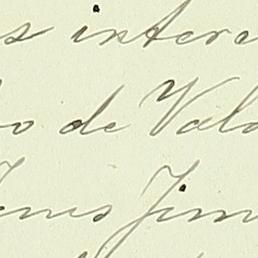 s intere
o de Vala
enis Jim